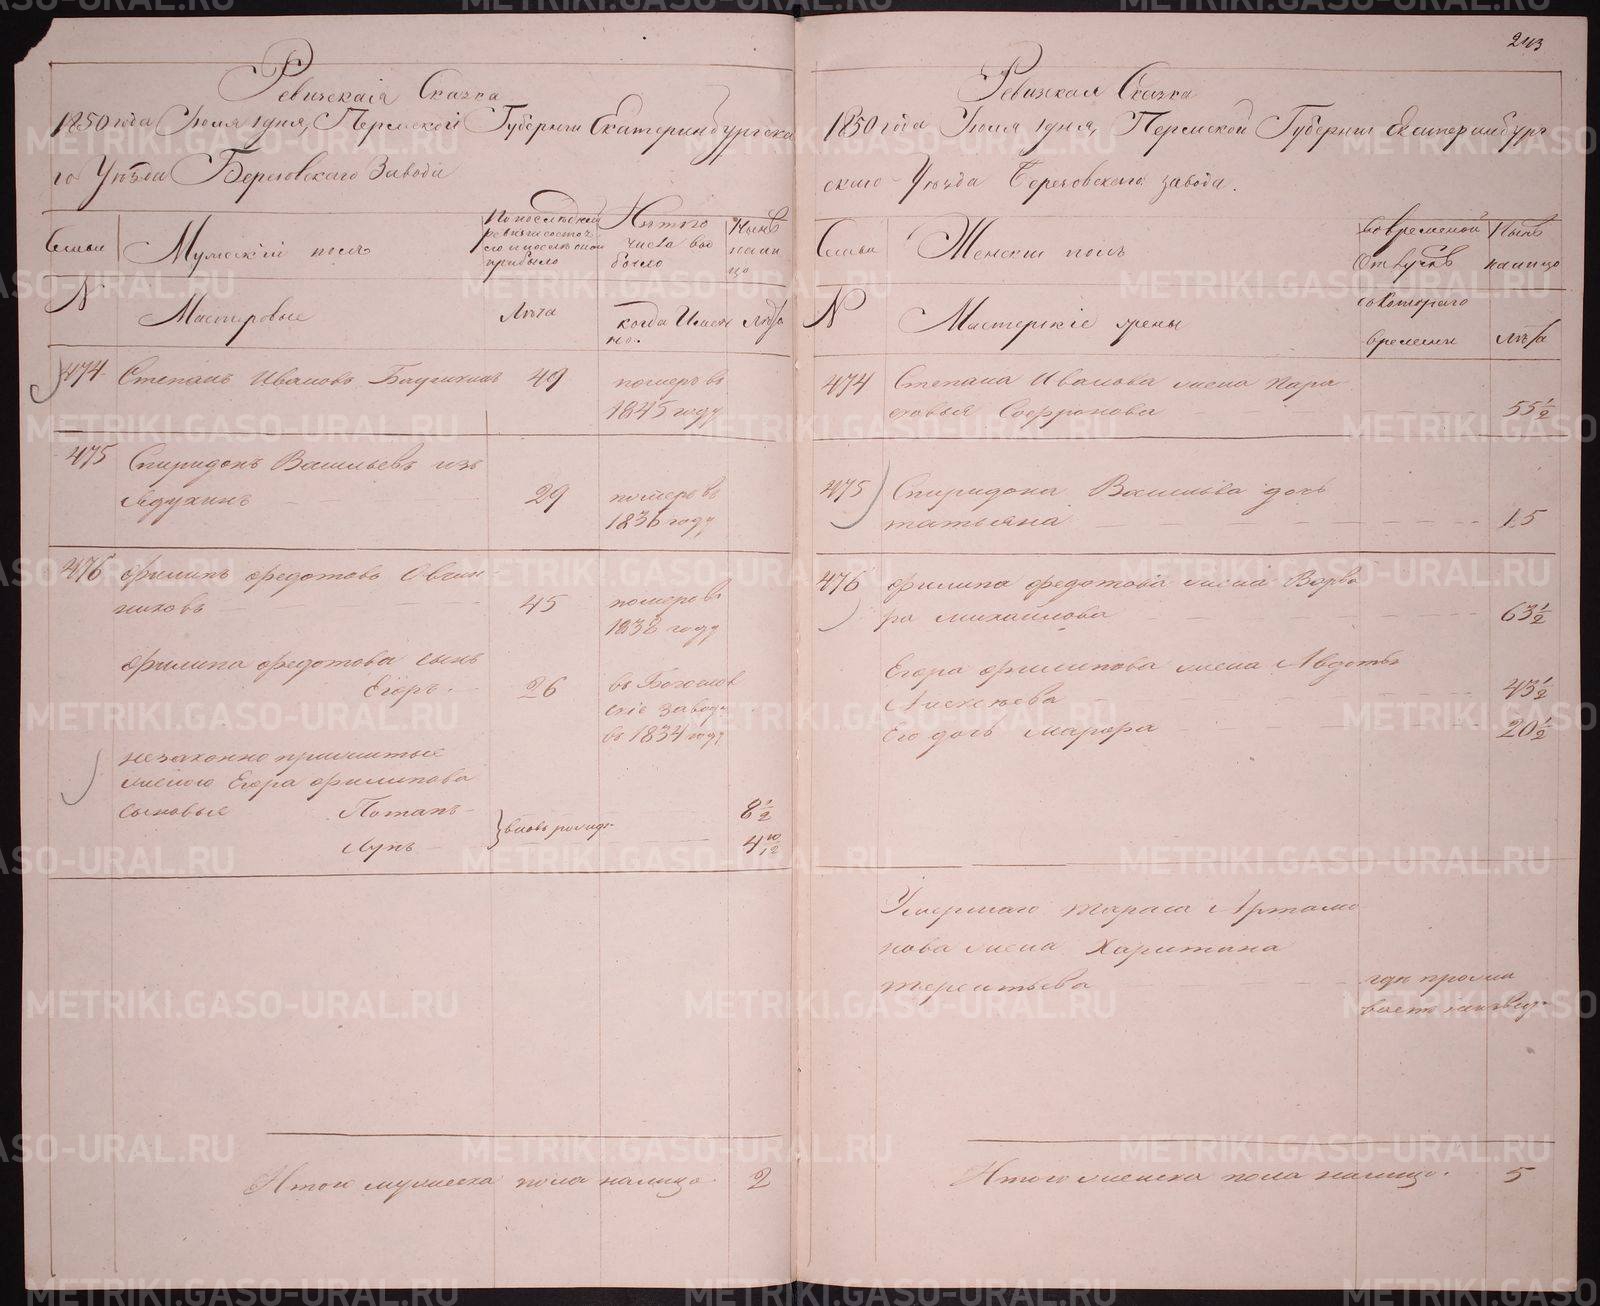 243
Ревизская Сказка
1850 года Июля 1 дня, Пермской Губернии Екатеринбургска
го Уѣзда Березовскаго Завода
Семьи
Мужескій полъ
По послѣдней
ревизіи состоя
ло и послѣ оной
прибыло
Изъ того
числа вы
было
Нынѣ
нали
цо
№
Мастеровые
Лѣта
когда Имен
но.
Лѣта
474
Степанъ Ивановъ
49
померъ въ
1845 году
475
Спиридонъ Васильевъ
29
померъ въ
1836 году
476
Филипъ Федотовъ Овчин
никовъ
45
померъ въ
1838 году
Филипа Федотова сынъ
Егоръ.
26
въ Богослов
скіе заводы
въ 1834 году
незаконно прижитые
женою Егора Филипова
сыновья Потапъ
8 1/2
вновь рожд.
Лупъ
4 10/12
Итого мужеска пола налицо. 2
Ревизская Сказка
1850 года Июля 1 дня, Пермской Губернии Екатеринбург
скаго Уѣзда Березовскаго завода.
Семьи
Женскій полъ
Во временной
Отлучкѣ
Нынѣ
налицо
№
Мастерскіе жены
съ Котораго
времени
лѣта
474
Степана Иванова жена Пара
сковья Софронова
55 1/2
475
Спиридона Васильева дочь
татьяна
15
476
Филипа Федотова жена Варва
ра михайлова
63 1/2
Егора Филипова жена Авдотья
Алексѣева
43 1/2
Его дочь марфа
20 1/2
Умершаго тараса Артамо
нова жена Харитина
терентьева
гдѣ прожи
ваетъ неизвѣст
Итого женска пола налицо. 5
METRIKI.GASO-URAL.RU